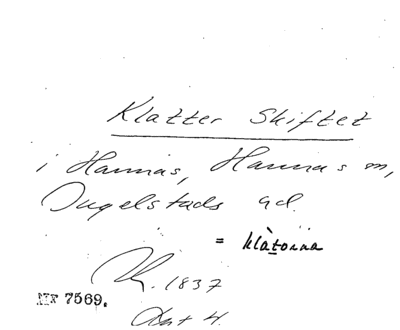 Klatter Skiftet
i Hannas, Hannas sn,
Ingelstads hd.
= klàtonna
1837
MF 7569.
Akt 4.